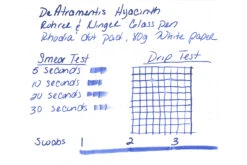 DeAtramentis Hyacinth
Rohrer & Klinger Glass pen
Rhodia dot pad, 80g White paper
Smear Test
Drip Test
5 seconds
10 seconds
20 seconds
30 seconds
Swabs 1 2 3